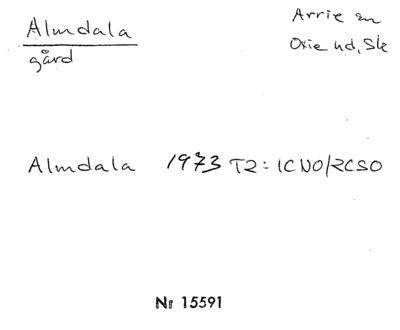 Almdala
gård
Arrie sn
Oxie hd, Sk
Almdala 1973 T2: 1CNO/2CSO
Nr 15591